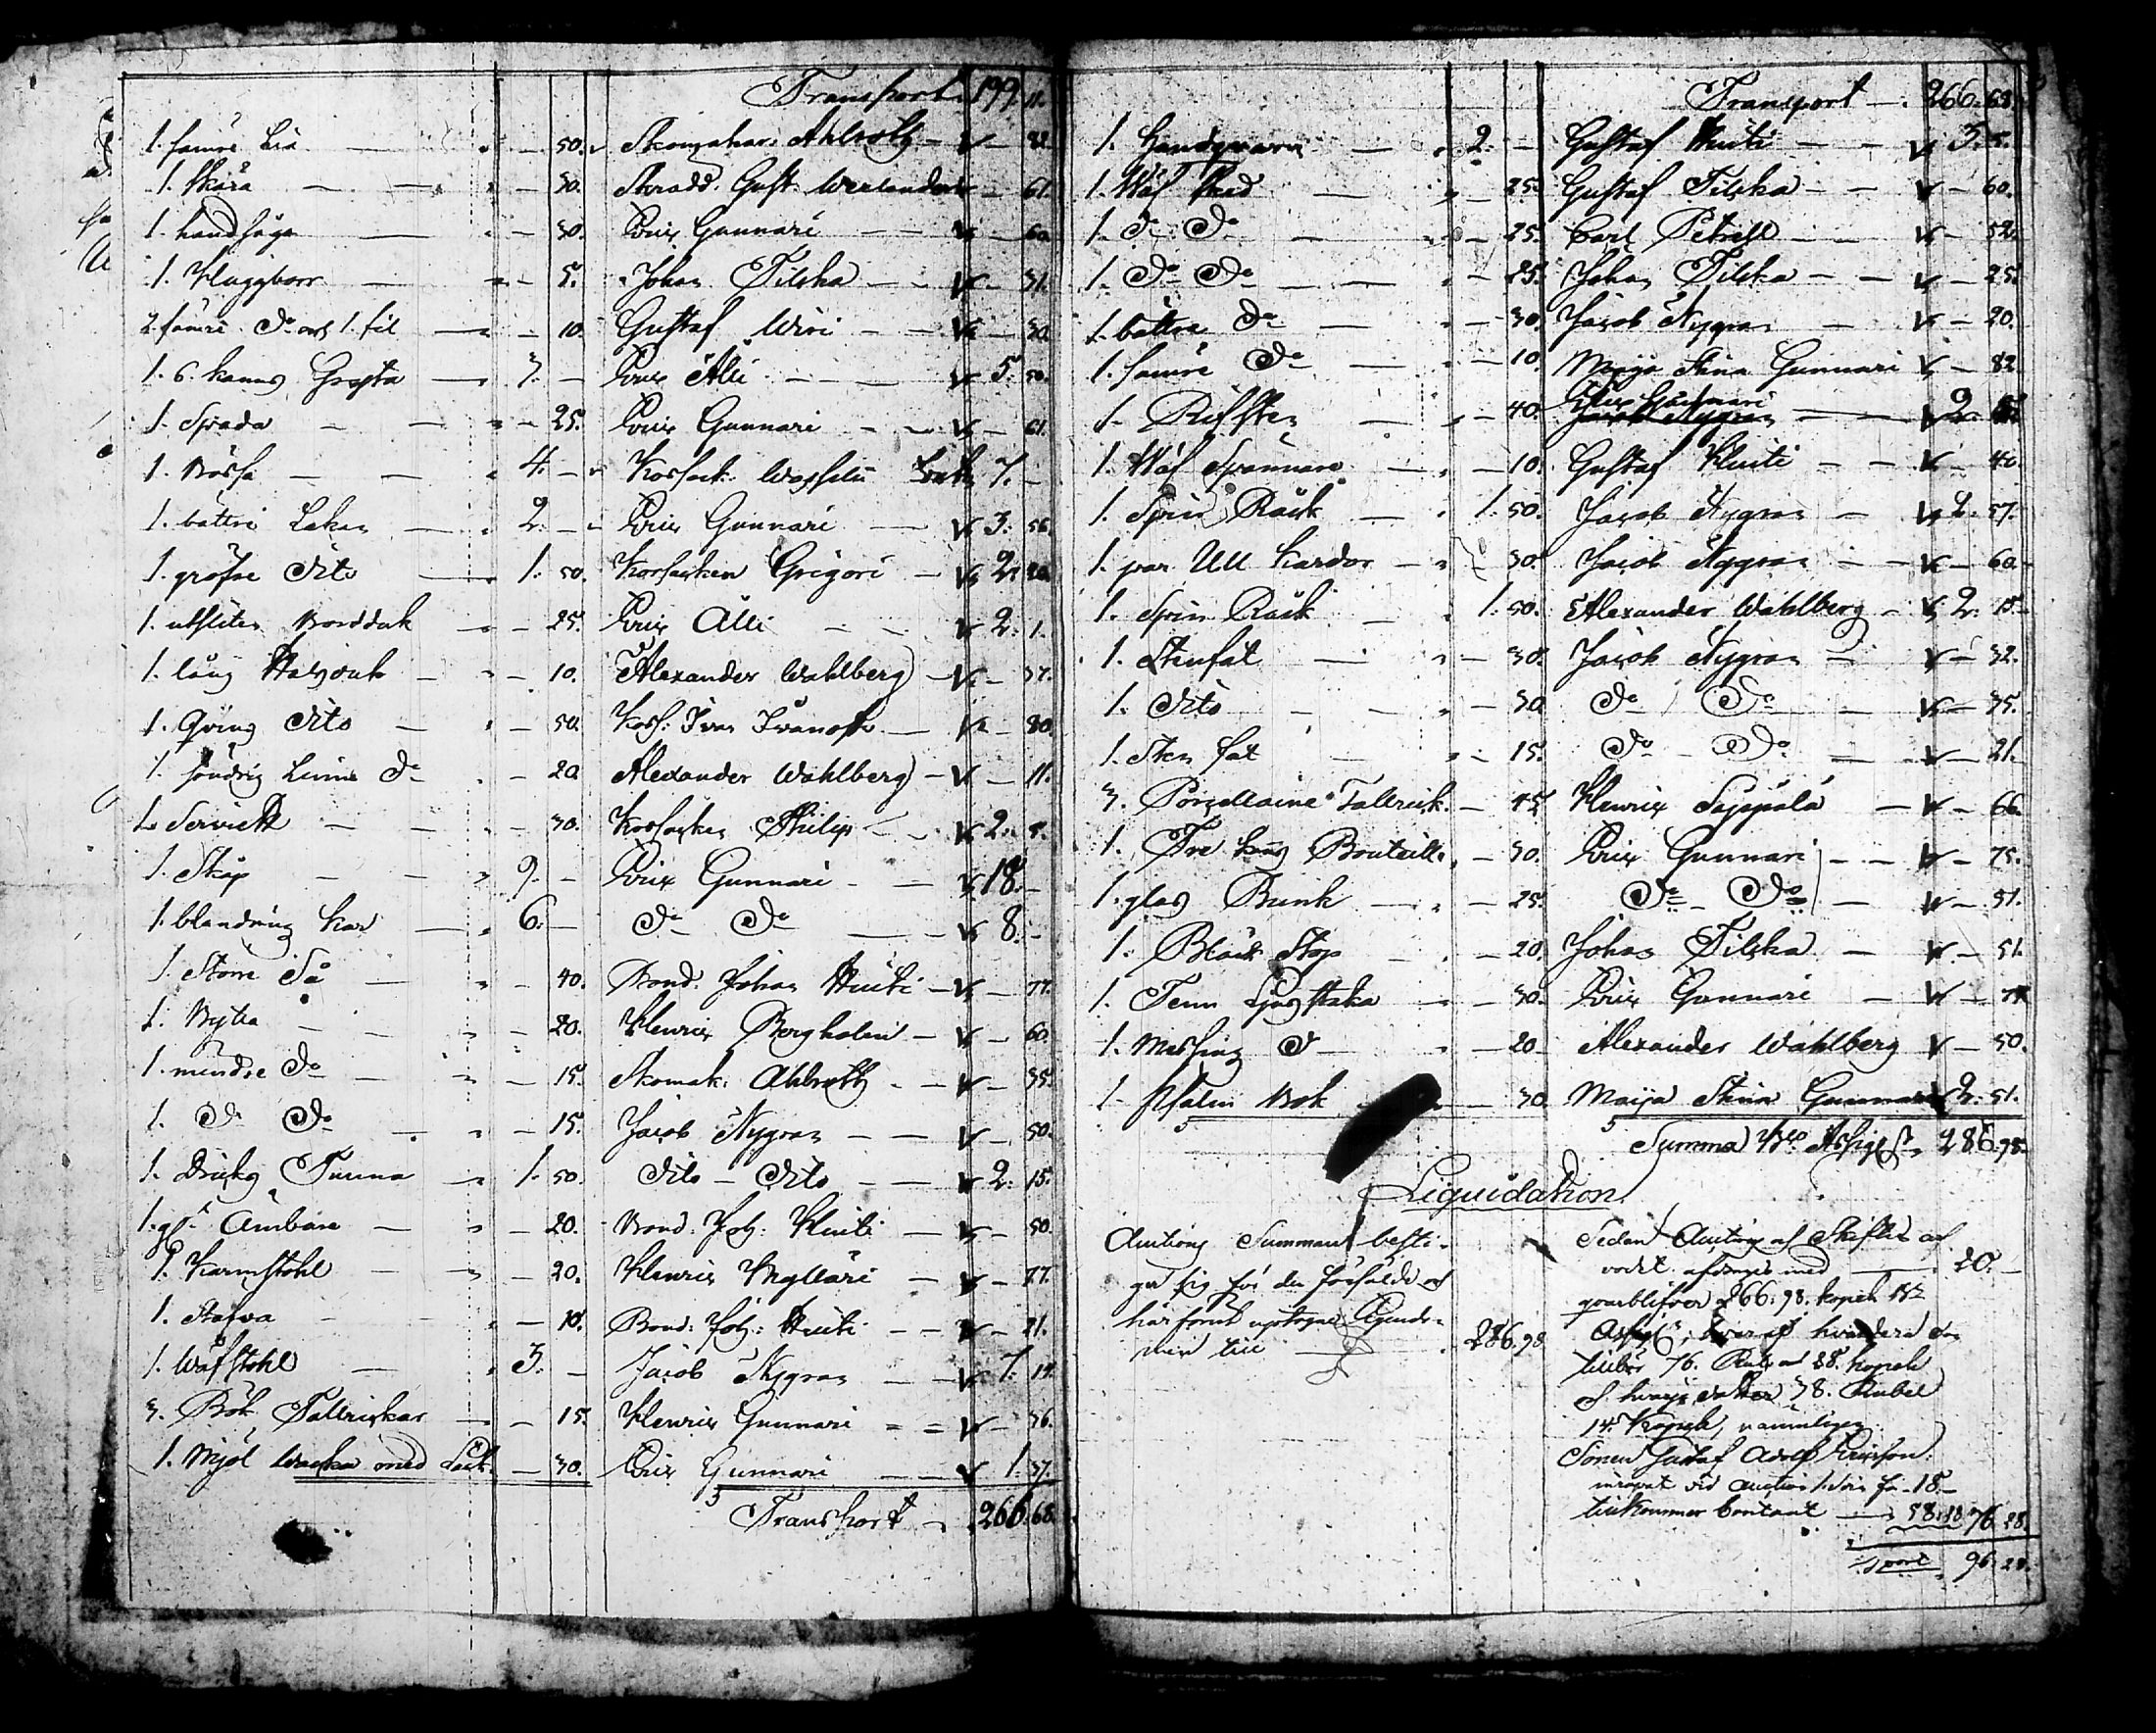 Transport 199. 11.
1. sämre Lia — — 50. Skomakar: Ahlroth — 82
1. Skära — — 30. Skradd. Gust. Werlander — 61.
1. handsåga — — 30. Eric Gunnari — — 60
1. Huggborr — — 5. Johan Filska — — 31.
2 sämre do och 1. fil — 10. Gustaf Wiri — — 30.
1. 6. kanns Gryta — 3. — Eric Alli — — 5. 50.
1. Spada — — 25. Eric Gunnari — — 61.
1. Bössa — — 4. — Kossack: Wassili 7. —
1. bättre Lakan — 2. — Eric Gunnari — 3. 56.
1. gröfre dito — 1. 50. Kossacken Grigori — 2. 20.
1. utsliten Bordduk — 25. Eric Alli — — 2. 1.
1. lång Halsduk — — 10. Alexander Wahlberg — 37.
1. dito — — 50. Koss: Ivan Ivanoff — 80.
1. söndrig Linne do — 20. Alexander Wahlberg — 11.
1. Serviett — — 30. Kossacken Philip — 2. 5.
1. Skåp — — 9. — Eric Gunnari — — 18. —
1. blandning kar — 6. — do do — — 8. —
1. Större Så — — 40. Bond. Johan Huiti — — 77.
1. Bytta — — 20. Henric Bergholm — — 60.
1. mindre do — — 15. Skomak: Ahlroth — — 35.
1. do do — — 15. Jacob Nygran — — 50.
1. Dricks Tunna — 1. 50. Dito — Dito — — 2. 15.
1. Ambare — — 20. Bond. Joh: Huiti — — 50.
1. Karmstohl — — 20. Henric Myllari — — 77.
1. Stafva — — 10. Bond: Joh: Huiti — — 21.
1. Wäfstohl — 3. — Jacob Nygran — — 7. 14.
3. Bök Tallrickar — 15. Henric Gunnari — — 36.
1. Mjöl med Lock — 30. Eric Gunnari — — 1. 37.
Transport — 266. 68.
Transport — 266. 68.
1. Handqvarn — 2. — Gustaf Huiti — — 3. 5.
1. Wäf Sked — — 25. Gustaf Filska — — 60.
1. do do — — 25. Carl Petrell — — 52.
1. do do — — 25. Johan Filska — — 25.
1. bättre do — — 30. Jacob Nygran — — 20.
1. sämre do — — 10. Maija Stina Gunnari — 82.
1. — 40. Eric Gunnari — 2.
1. Wäf Spännare — — 10. Gustaf Huiti — — 40.
1. Spin Råck — 1. 50. Jacob Nygran — 2. 57.
1. par Ull Kardor — 30. Jacob Nygran — — 60.
1. Spin Råck — 1. 50. Alexander Wahlberg — 2. 15.
1. Stenfat — — 30. Jacob Nygran — — 32.
1. Dito — — 30. do do — — 35.
1. Sten fat — — 15. do — do — — 21.
3. Porcellaine Tallrick. — 45. Henric Seppälä — — 66.
1. Tre kans Bouteille — 30. Eric Gunnari — — 75.
1. glas Bunk — — 25. do — do — — 51.
1. Bläck Stop — — 20. Johan Filska — — 51.
1. Tenn Ljusstaka — — 30. Eric Gunnari — —
1. Messing do — — 20. Alexander Wahlberg — 50.
1. Psalm Bok — — 30. Maija Stina Gunnari 2. 51.
Summa 286. 98.
Liquidation
Auctions Summan besti-
ger sig för den försålde och
härförut uptagne Egendo-
men till — 286. 98
Sedan Auction och Skiftes
afdragit med — 20. —
qvarblifver 266. 98. kopek
hvaraf hvardera son
tillkommer 76. Rub och 28. kopek
och hvarje dotter 38. Rubel
14. Kopek, nämligen
Sonen Gustaf Adolf Ericsson
inropat vid auction för — 18. —
tillkommer Contant — 58. 28. 76. 28.
Tsport 96. 28.